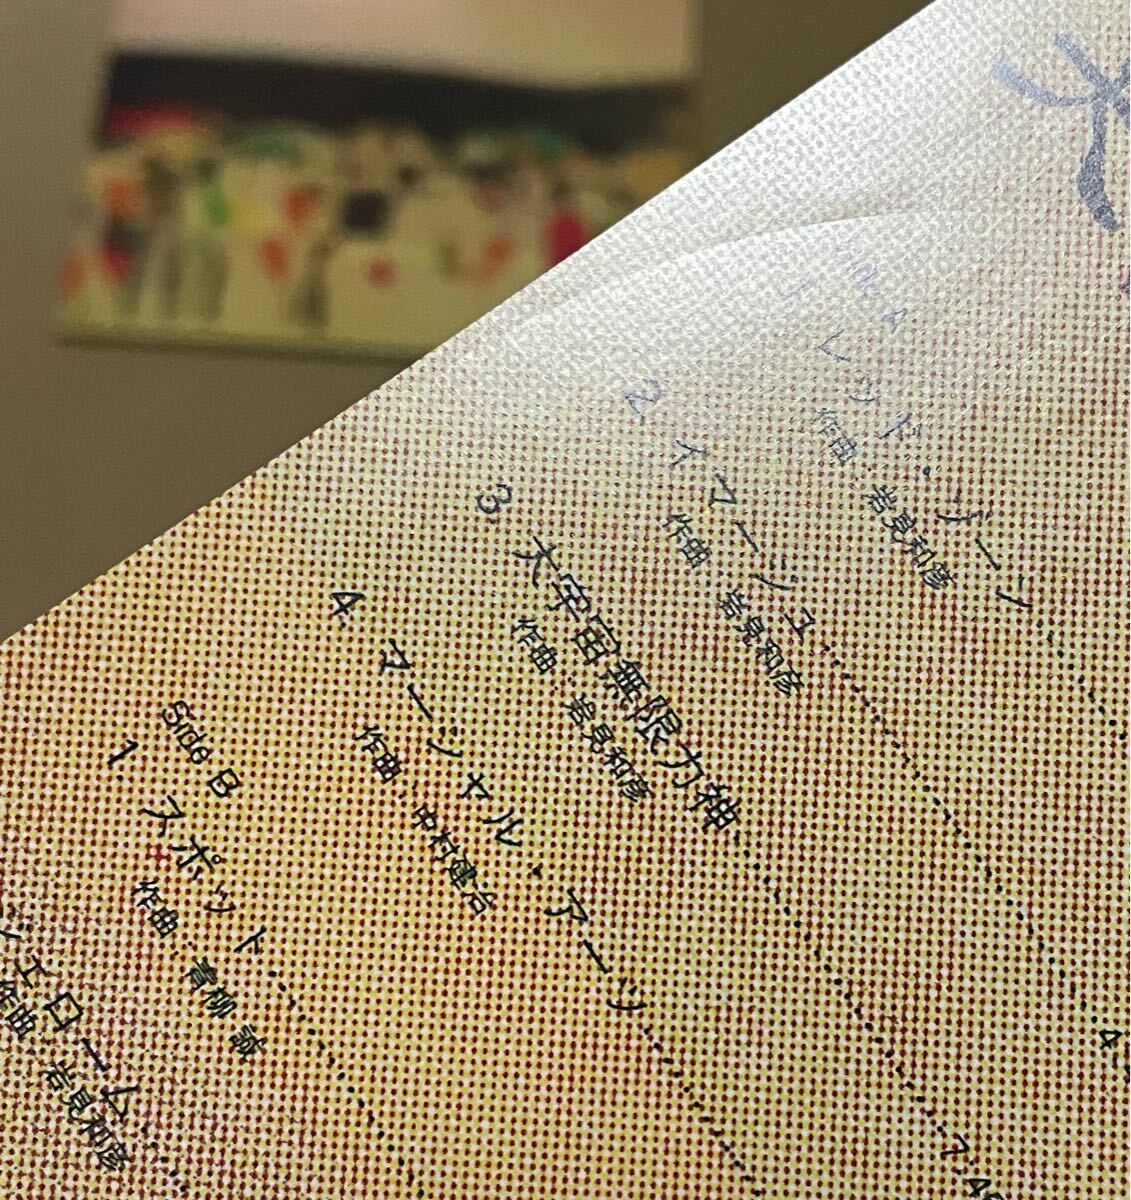 大
Side A
1. レッド・ゾーン
作曲：岩見和彦
2. イマージュ
作曲：岩見和彦
3. 大宇宙無限力神 7:4
作曲：岩見和彦
4. マーシャル・アーツ
作曲：中村建治
Side B
1. スポット
作曲：青柳 誠
ジェローム
作曲：岩見和彦